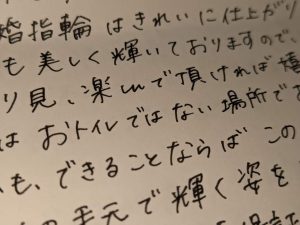 婚指輪はきれいに仕上がり
も美しく輝いておりますので、
り見、楽しんで頂ければ嬉
は おトイレではない場所でさ
も、できることならば この
手元で輝く姿を